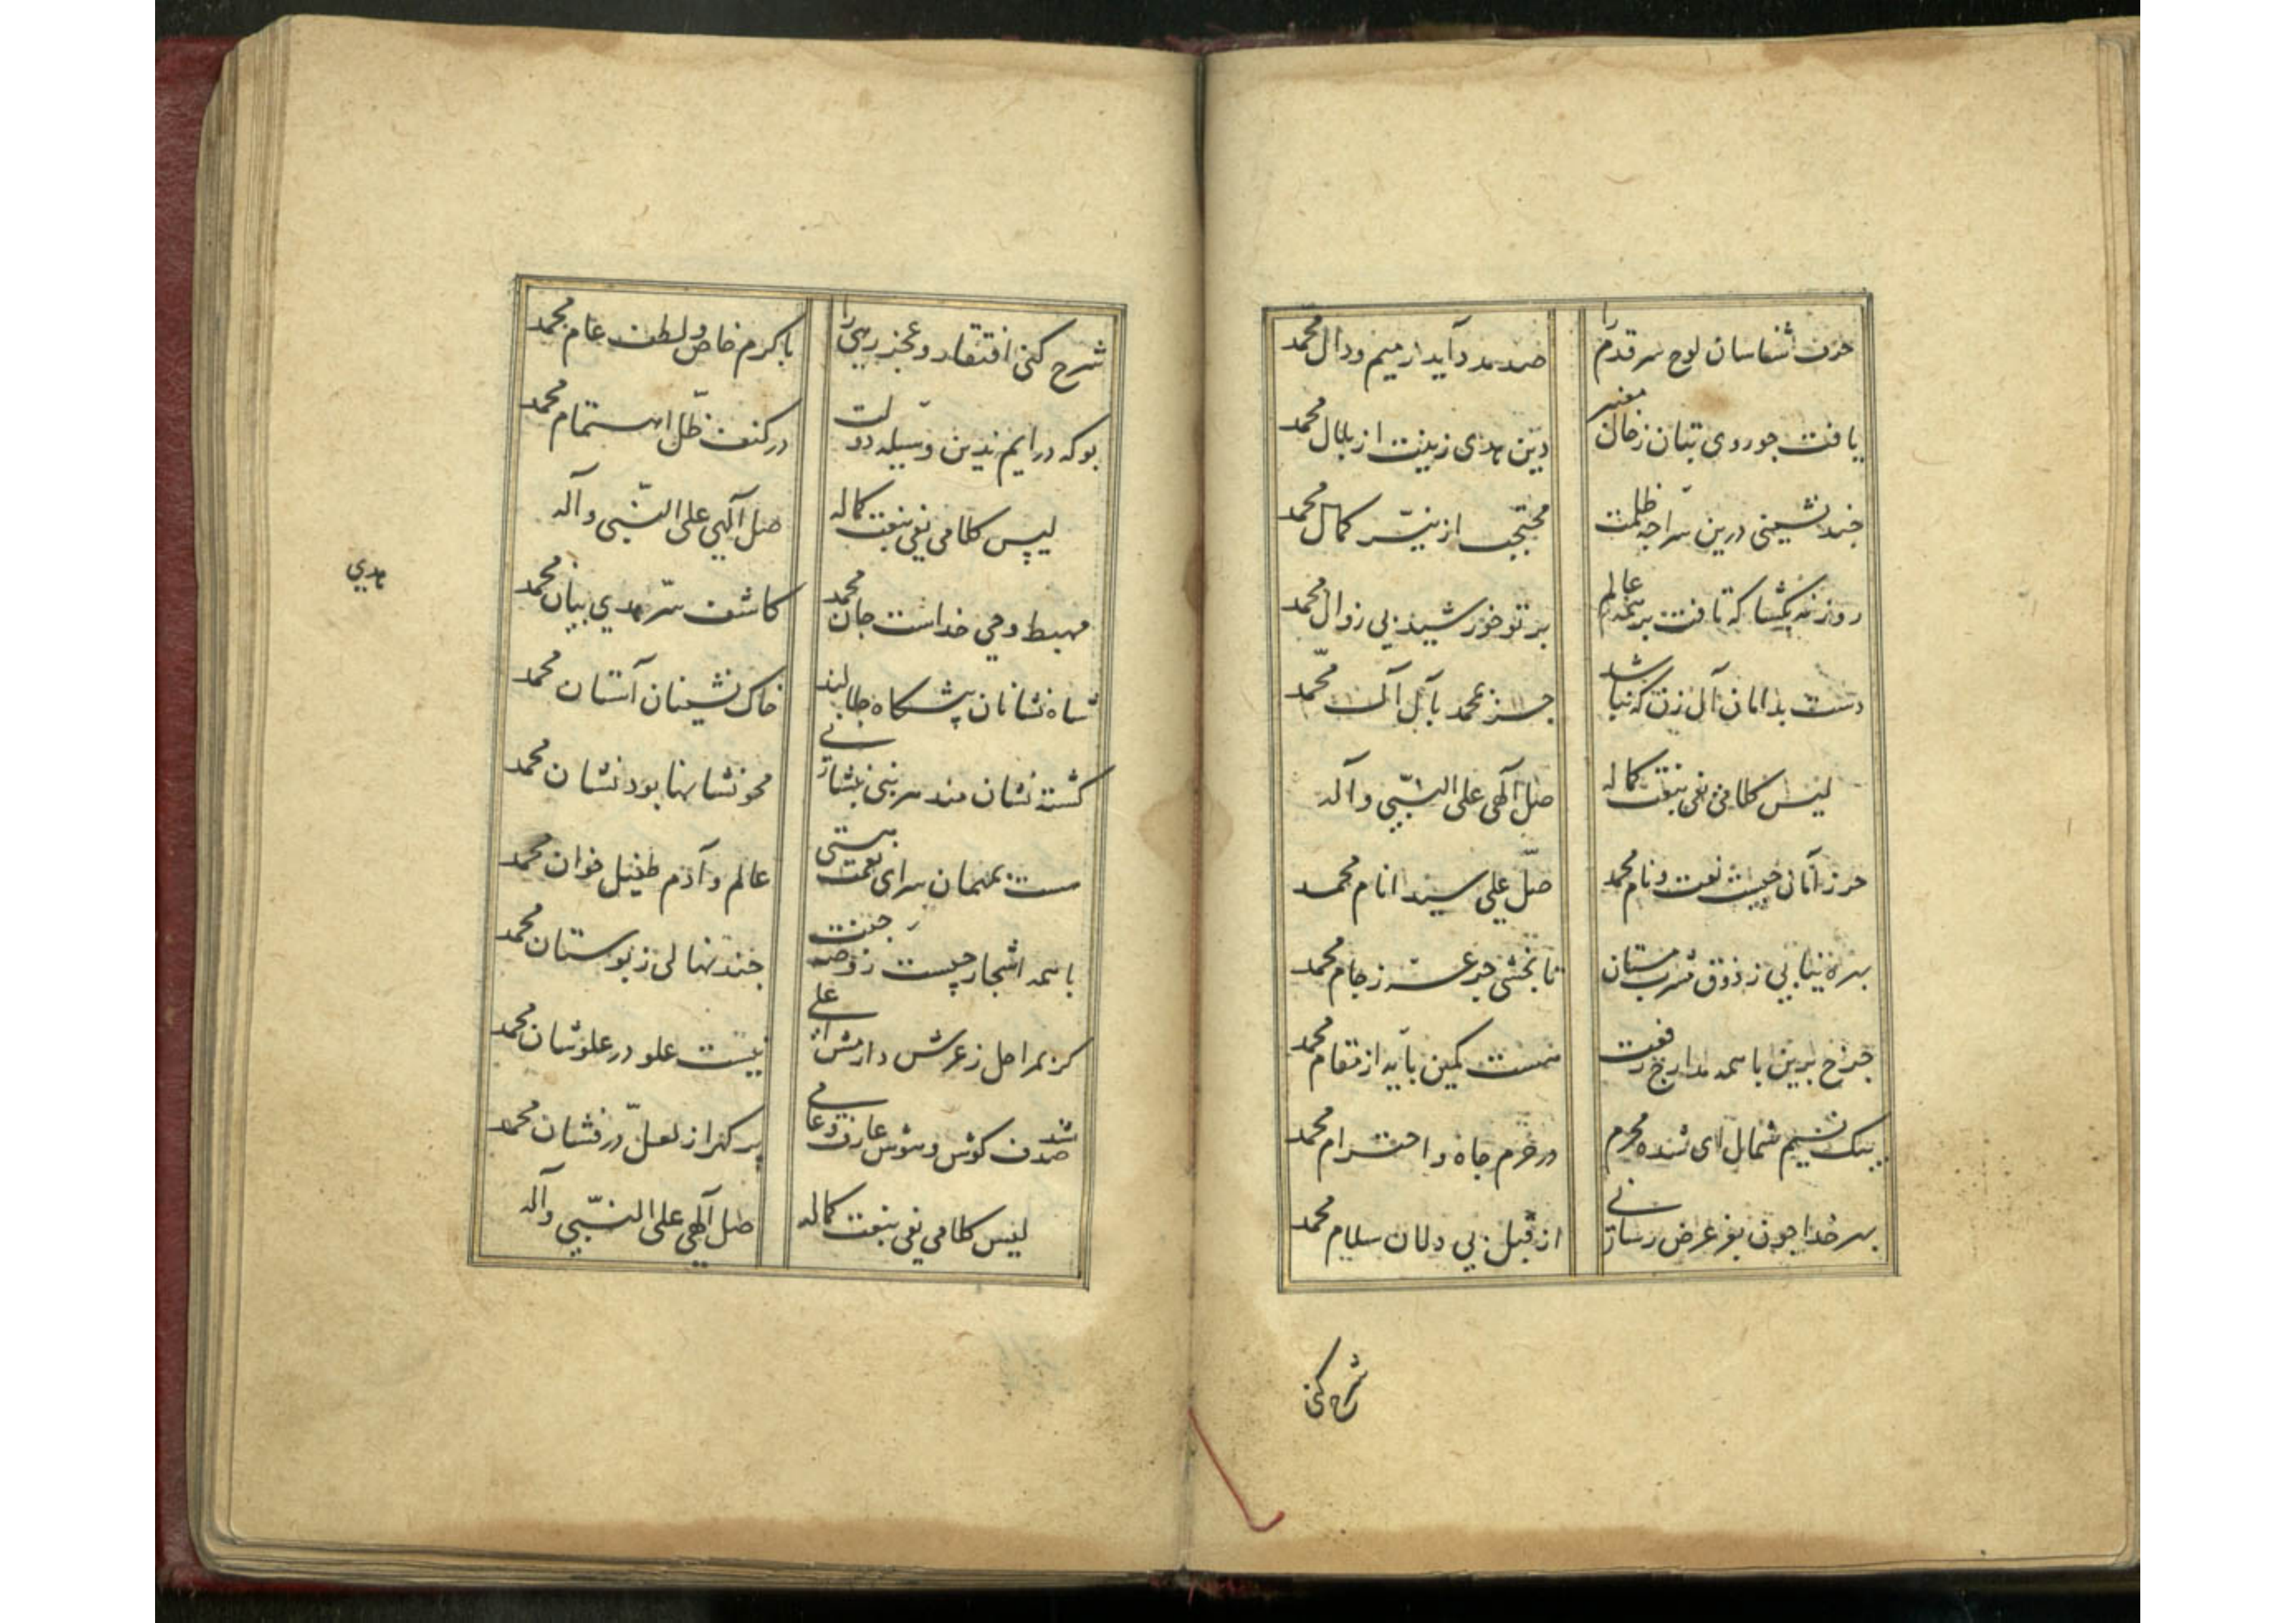 حرف شناسان لوح سر قدم را
صد مدد آید ز میم و دال محمد
یافت چو روی بتان ز خال معنبر
دین هدی زینت از بلال محمد
چند نشینی درین سراچه ظلمت
محتجب از نیّر کمال محمد
روزنه بگشا که تافت بر همه عالم
پرتو خورشید بی زوال محمد
دست بدامان آل زن که نباشد
جز محمد بآل آل محمد
لیس کلامی یفی بنعت کماله
صلّ آلهی علی النبّی و آله
حرز امان چیست نعت و نام محمد
صلّ علی سید انام محمد
بهره نیابی ز ذوق مشرب مستان
تا نچشی جرعه ز جام محمد
چرخ برین با همه مدارج رفعت
هست کمین پایه از مقام محمد
پیک نسیم شمال ای شده محرم
در حرم جاه و احترام محمد
بهر خدا چون بغرض عرض رسانی
از قبل بی دلان سلام محمد
شرح کنی
شرح کنی افتقار و عجز رهی را
با کرم خاص و لطف عام محمد
بوکه درایم بدین وسیله دولت
در کنف ظلّ اهتمام محمد
لیس کلامی یفی بنعت کماله
صل آلهی علی النّبی و آله
مهبط وحی خداست جان محمد
کاشف سرّ هدی بیان محمد
شاه نشانان پیشگاه جلالند
خاک نشینان آستان محمد
کشته نشان مند هر نبی بنشانی
محو نشانها بود نشان محمد
هست بمهمان سرای نعمت هستی
عالم و آدم طفیل خوان محمد
با همه اشجار چیست روضه جنت
چند نهالی ز بوستان محمد
کر بمراحل ز عرش دارمش اعلی
نیست علو در علو شان محمد
شد صدف کوش و هوش عارف و عامی
پر کهر از لعل درفشان محمد
لیس کلامی یفی بنعت کماله
صل آلهی علی النّبّی و آله
هدی